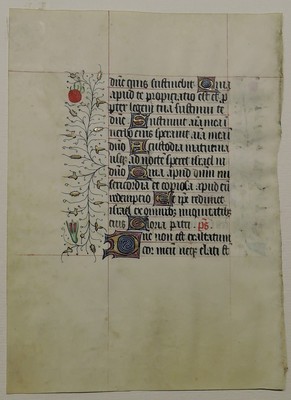 dñe quis sustinebit Quia
apud te propiciatio est et p
pter legem tuã sustinui te
dñe Sustinuit aĩa mea ĩ
uerbo eius sperauit aĩa mea ĩ
dño A custodia matutina
usqʒ ad noctẽ speret israel in
dño Quia apud dñm mi
sericordia et copiosa apud eũ
redemptio Et ipẽ redimet
israel ex omnibus iniquitatibus
eius Gloria patri. ps̃
Dñe non est exaltatum
cor meũ neqʒ elati st̃